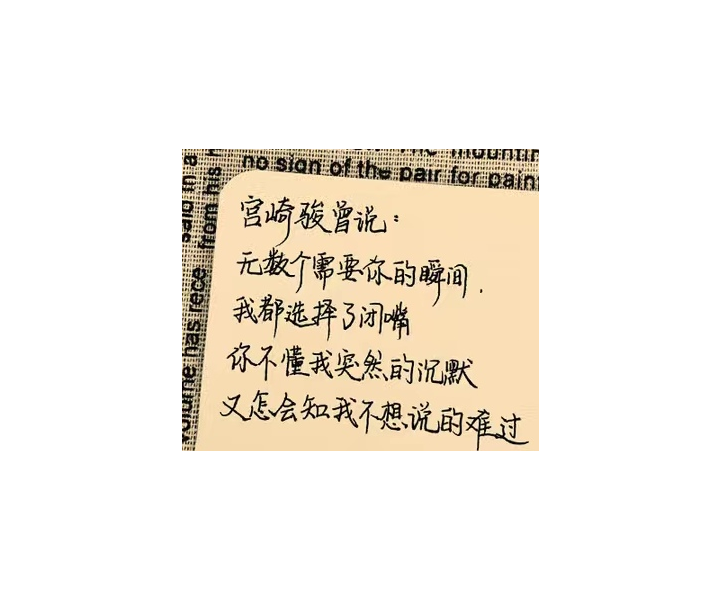 no sign of the pair for pain
said in a
from his
volume has rece
宫崎骏曾说：
无数个需要你的瞬间，
我都选择了闭嘴
你不懂我突然的沉默
又怎会知我不想说的难过